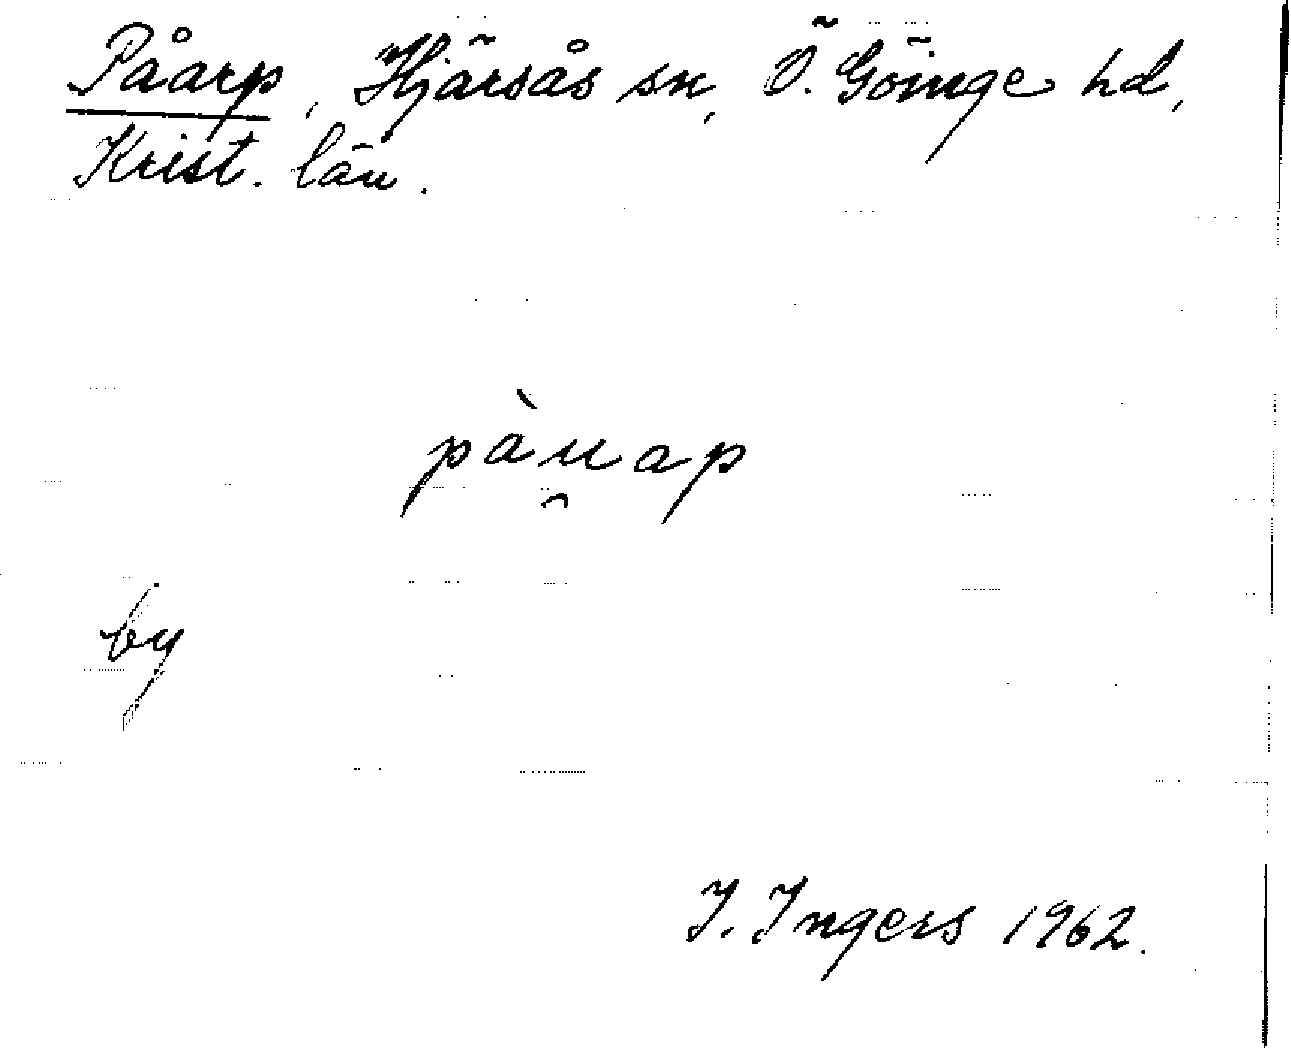 Påarp, Hjärsås sn, Ö. Göinge hd,
Krist. län.
pàu̯ap
by
I. Ingers 1962.